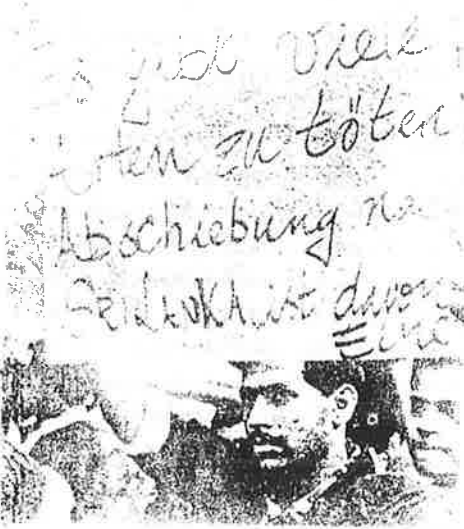 gibt viele
Arten zu töten
Abschiebung na
SRI LANKA ist davon
Eine